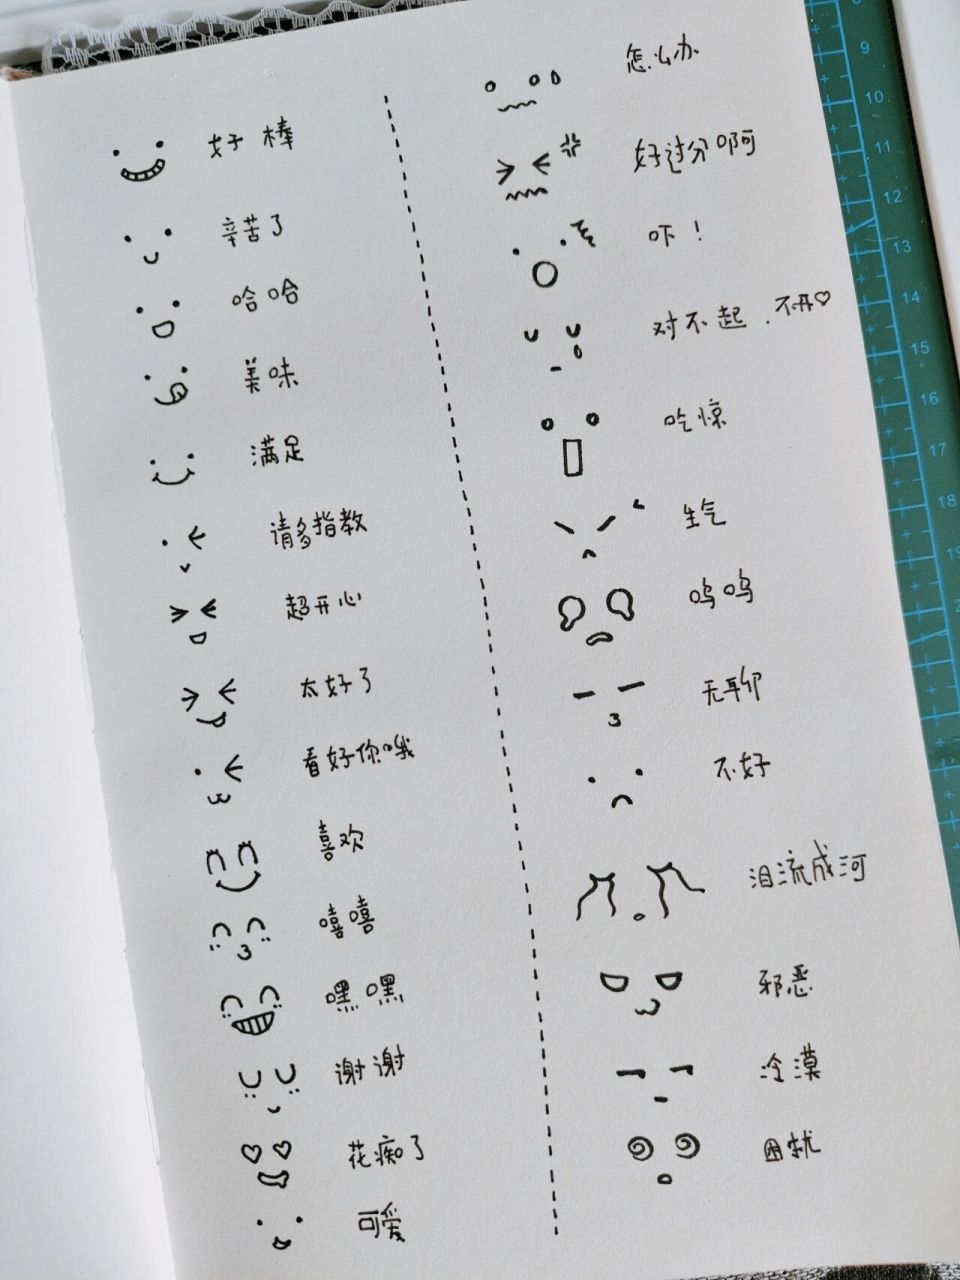 好棒
辛苦了
哈哈
美味
满足
请多指教
超开心
太好了
看好你哦
喜欢
嘻嘻
嘿嘿
谢谢
花痴了
可爱
怎么办
好过分啊
吓！
对不起.不开♡
吃惊
生气
呜呜
无聊
不好
泪流成河
邪恶
冷漠
困扰
9
10
11
12
13
14
15
16
17
18